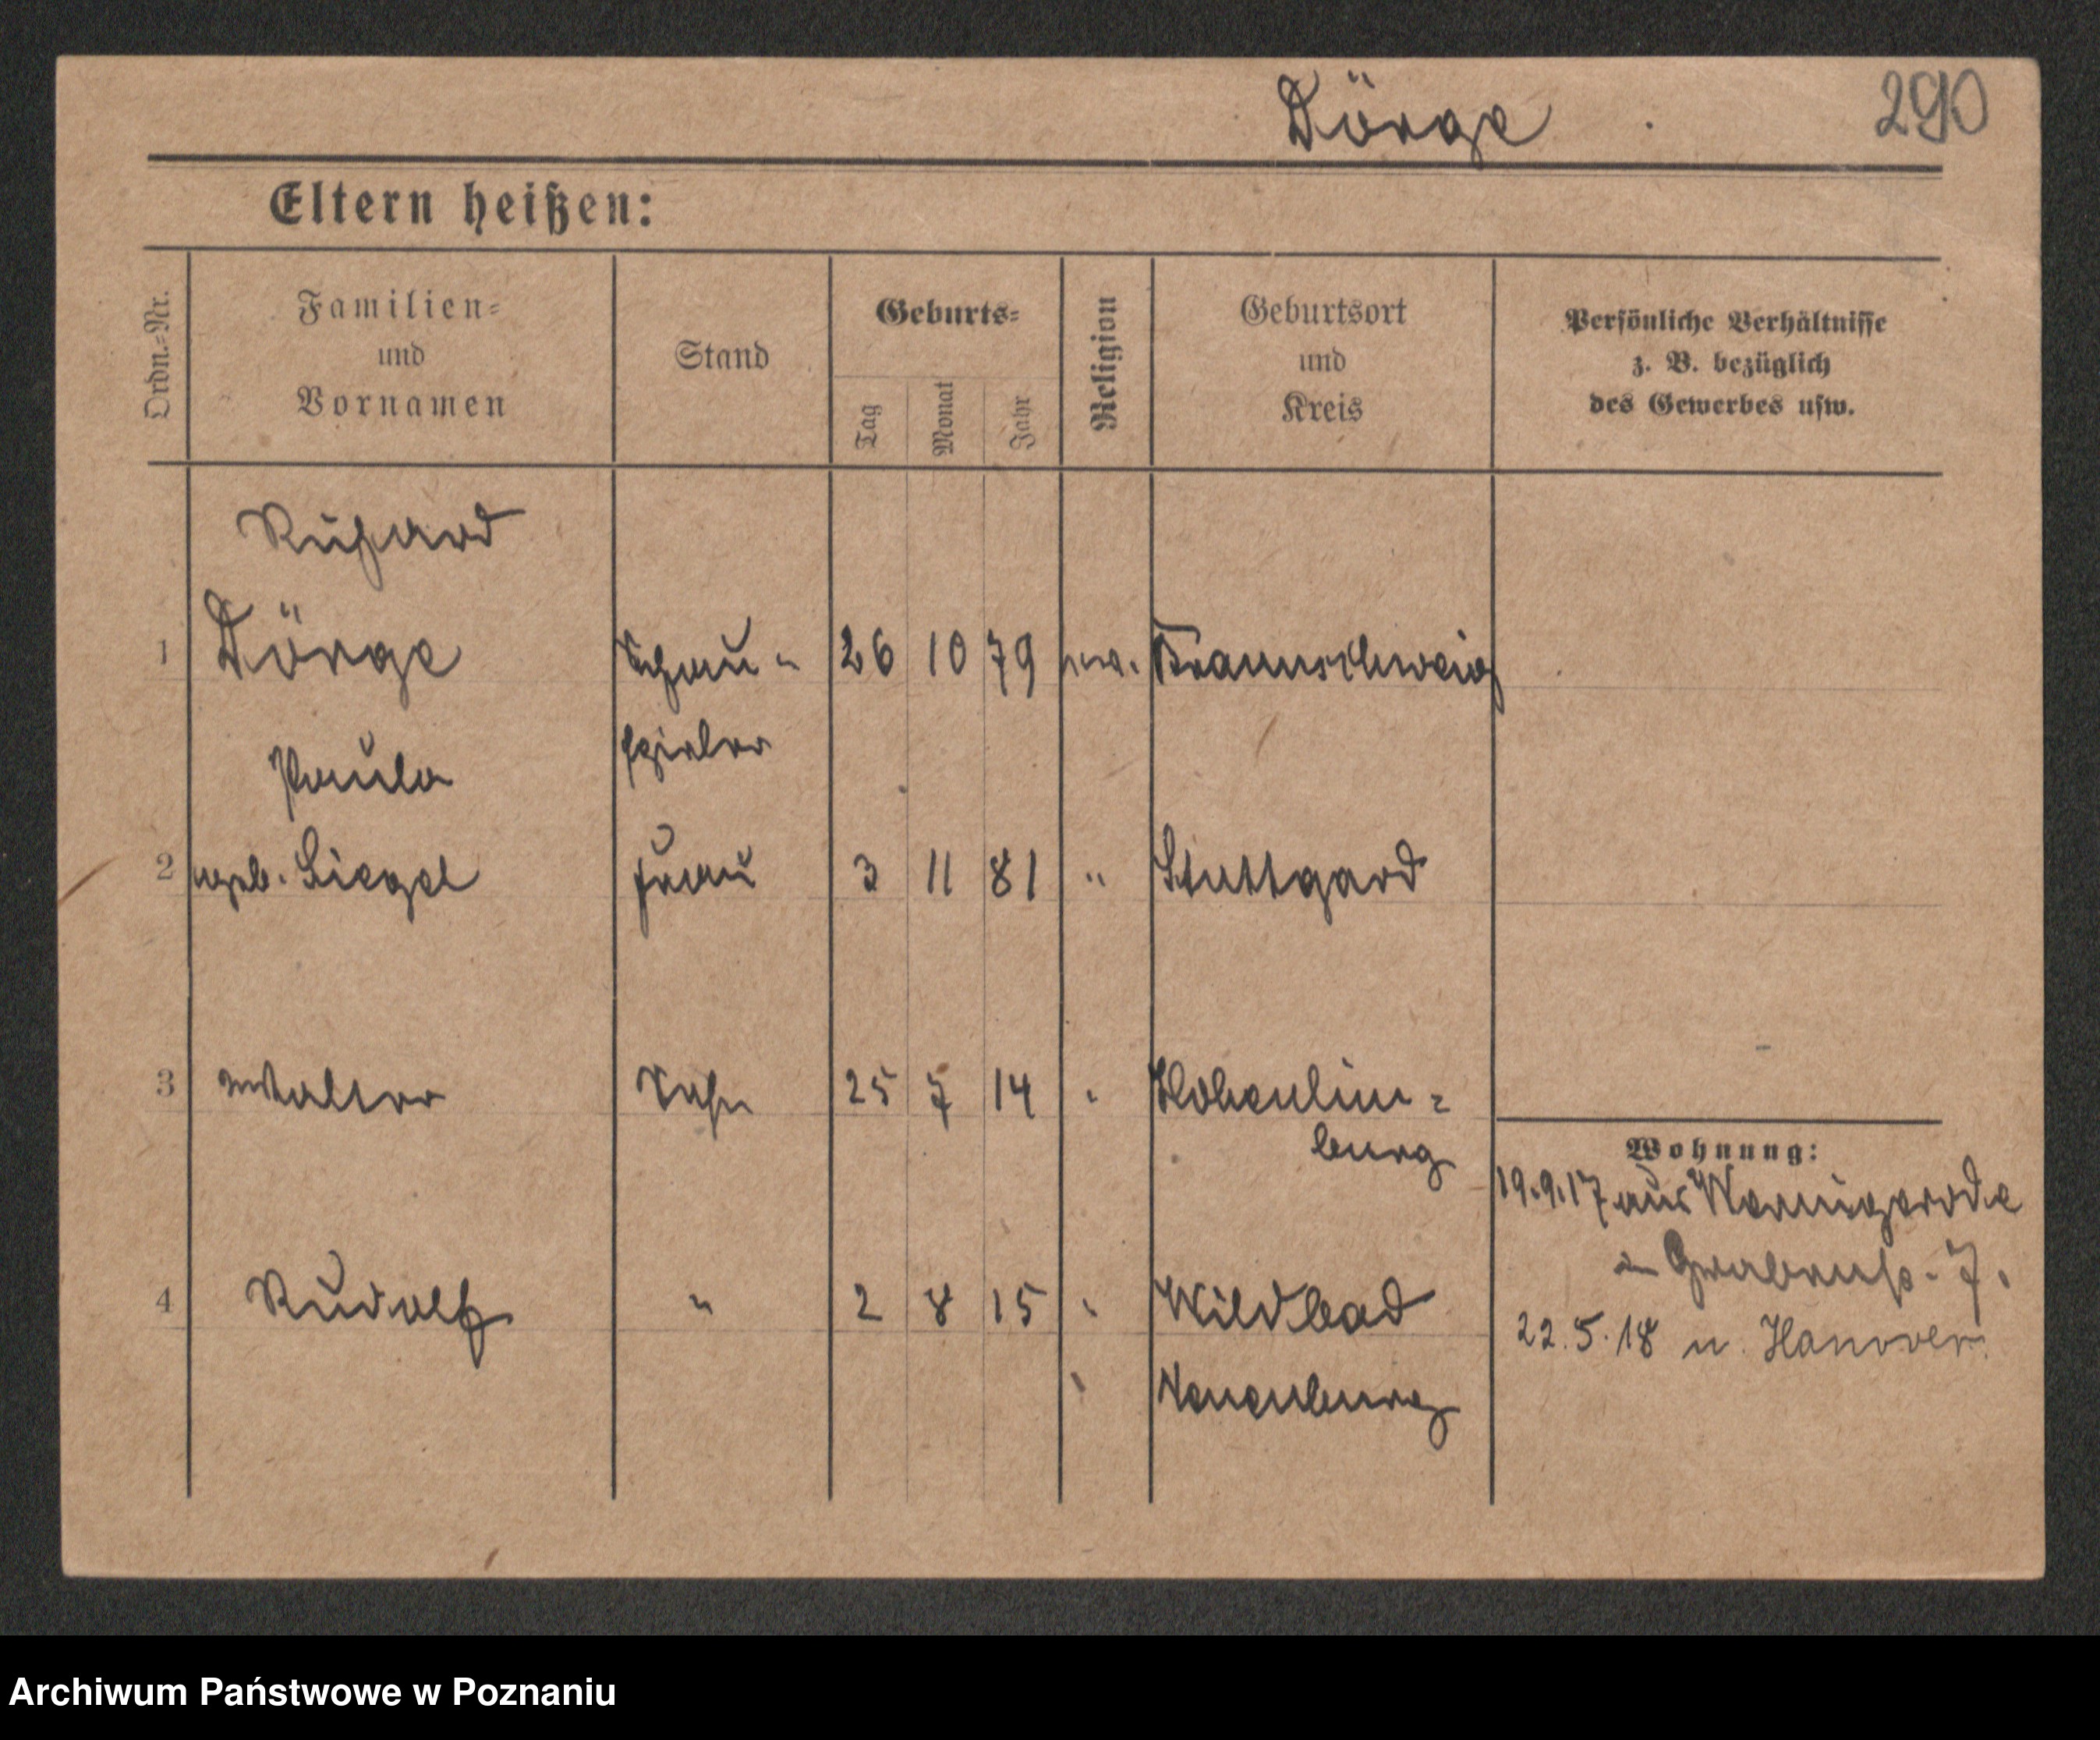 Dörge 290
Eltern heißen:
Ordn.-Nr. Familien- und Vornamen Stand Geburts- Tag Monat Jahr Religion Geburtsort und Kreis Persönliche Verhältnisse z. B. bezüglich des Gewerbes usw.
Richard
1 Dörge Schau- 26 10 79 Braunschweig
spieler
Paula
2 geb. Siegel Frau 3 11 81 " Stuttgard
3 Walter Sohn 25 7 14 " Hohenlim-
burg
Wohnung:
19.9.17 aus Wernigerode
7.
4 Rudolf " 2 8 15 " Wildbad
22.5.18 n. Hanover.
Neuenburg
Archiwum Państwowe w Poznaniu